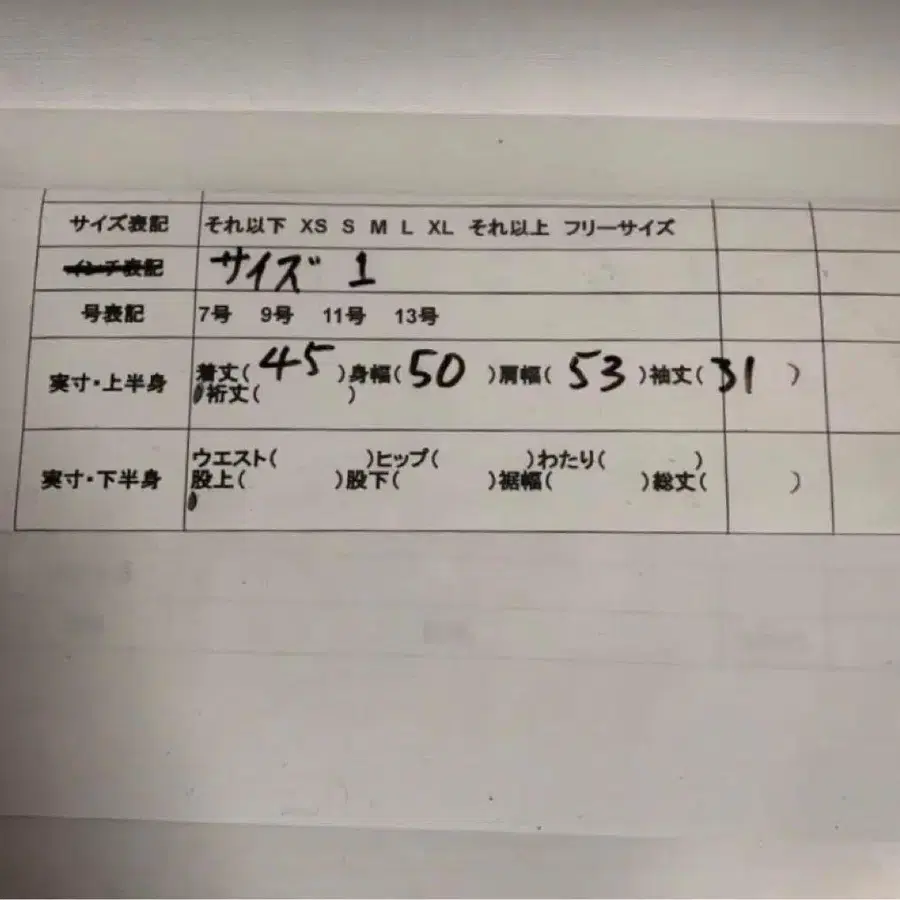 サイズ表記 それ以下 XS S M L XL それ以上 フリーサイズ
インチ表記 サイズ 1
号表記 7号 9号 11号 13号
実寸・上半身 着丈( 45 )身幅( 50 )肩幅( 53 )袖丈( 31 )
裄丈( )
実寸・下半身 ウエスト( )ヒップ( )わたり( )
股上( )股下( )裾幅( )総丈( )